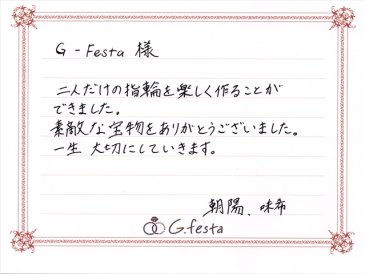 G-Festa 様
二人だけの指輪を楽しく作ることが
できました。
素敵な宝物をありがとうございました。
一生 大切にしていきます。
朝陽、味希
G.festa